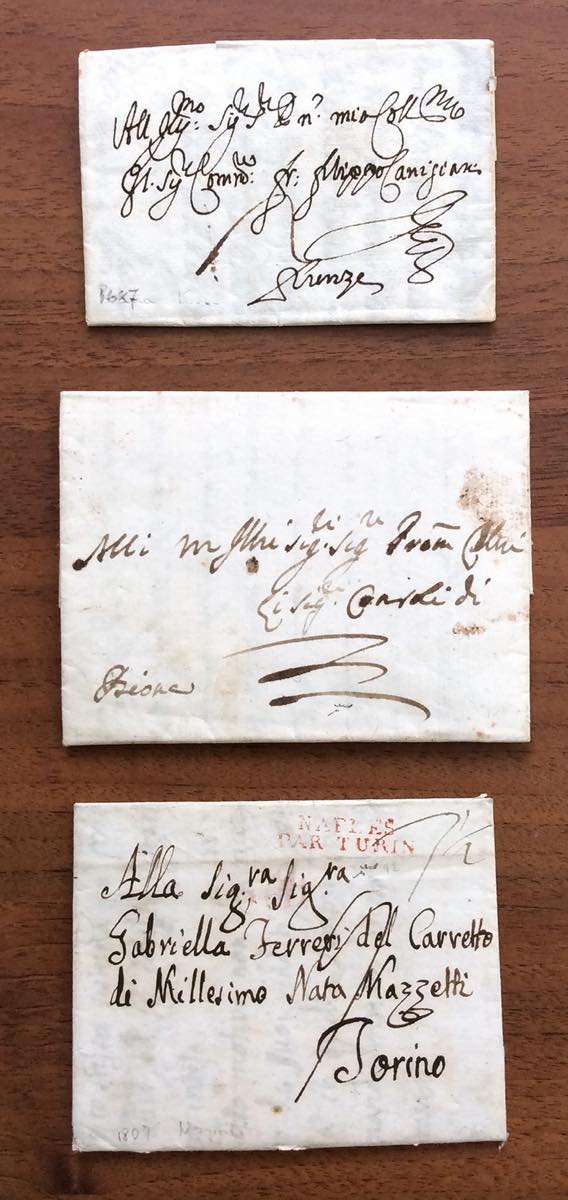 All Ill:mo Sig.r Sig.r P.n mio Coll.mo
Il Sig.r Comm.re Fr: Filippo Canigiani
Firenze
1687
Alli m Illri Sig.ri Sig.ri
Li Sig.ri di
Bione
NAPLES
PAR TURIN
Alla Sig.ra Sig.ra
Gabriella Ferreri del Carretto
di Millesimo Nata Mazzetti
Torino
1809